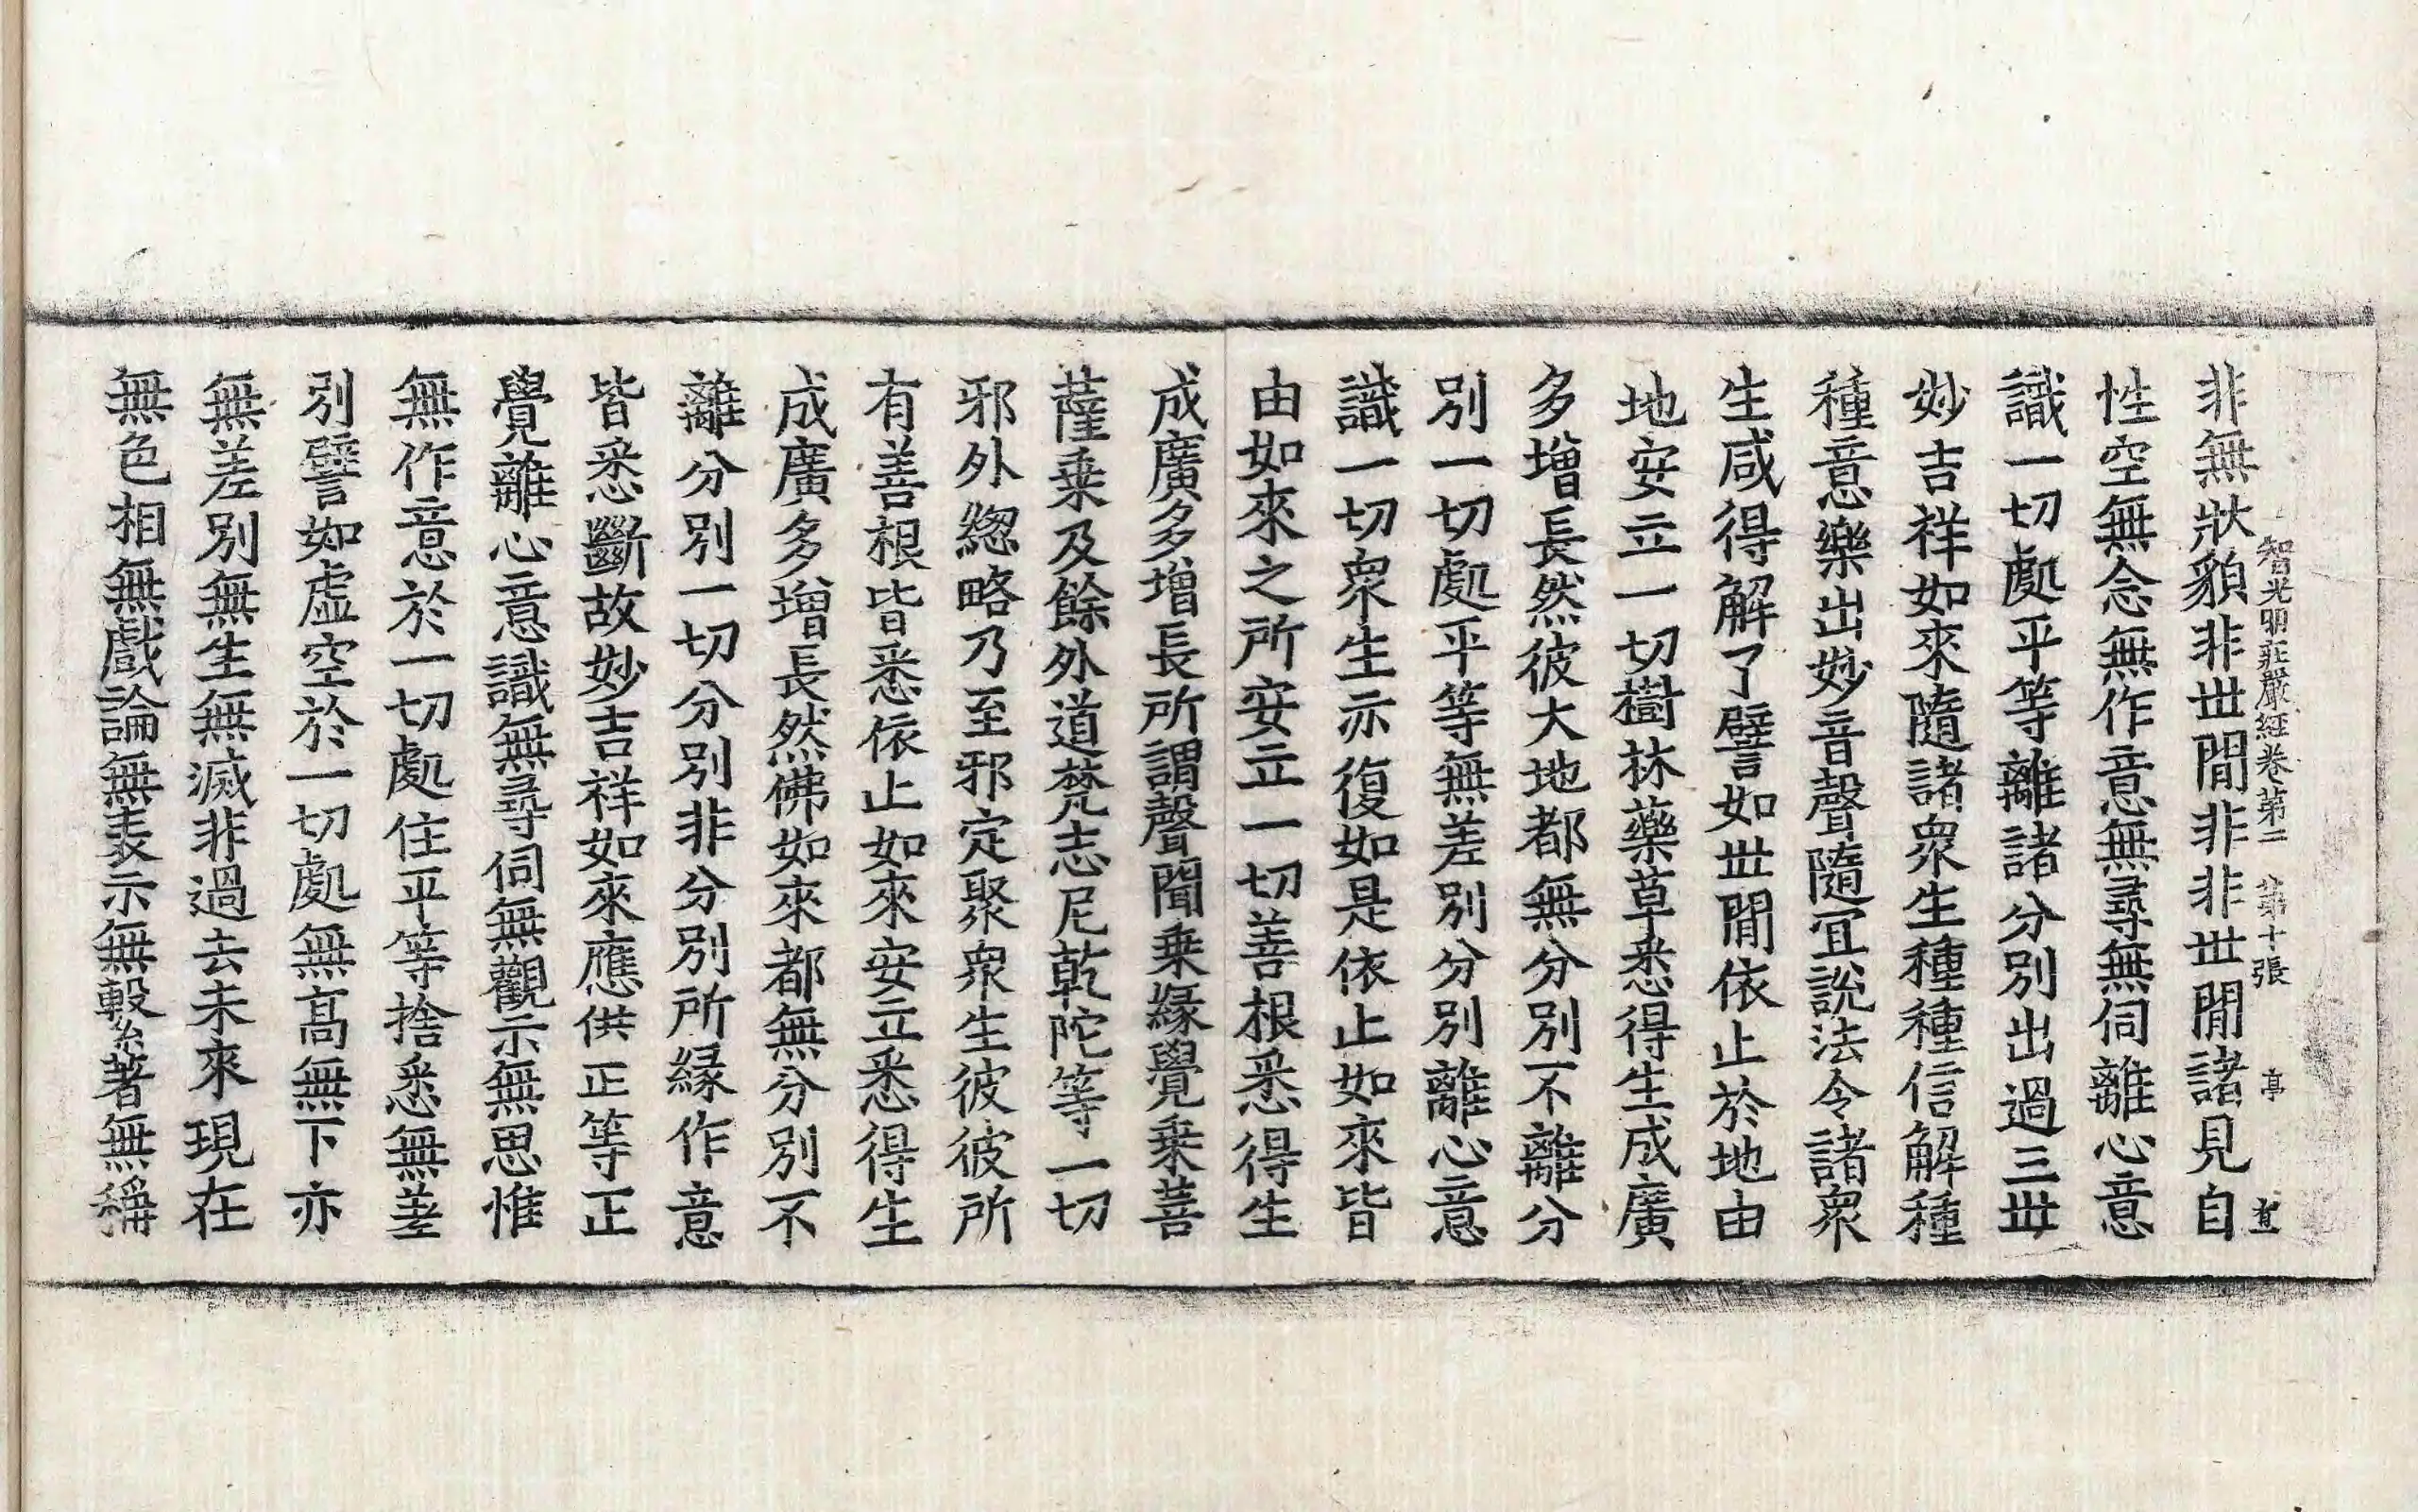 智光明莊嚴經卷第二 第十張 亭
非無狀貌非世閒非非世閒諸見自
性空無念無作意無尋無伺離心意
識一切處平等離諸分別出過三世
妙吉祥如來隨諸衆生種種信解種
種意樂出妙音聲隨冝說法令諸衆
生咸得解了譬如世閒依止於地由
地安立一切樹林藥草悉得生成廣
多增長然彼大地都無分別不離分
別一切處平等無差別分別離心意
識一切衆生亦復如是依止如來皆
由如來之所安立一切善根悉得生
成廣多增長所謂聲聞乗緣覺乗菩
薩乗及餘外道梵志尼乾陀等一切
邪外緫略乃至邪定聚衆生彼彼所
有善根皆悉依止如來安立悉得生
成廣多增長然佛如來都無分別不
離分別一切分別非分別所緣作意
皆悉斷故妙吉祥如來應供正等正
覺離心意識無尋伺無觀示無思惟
無作意於一切處住平等捨悉無差
別譬如虛空於一切處無高無下亦
無差別無生無滅非過去未來現在
無色相無戲論無表示無繫著無稱